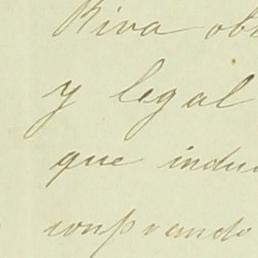 Riva ob
y legal
que indu
comprando